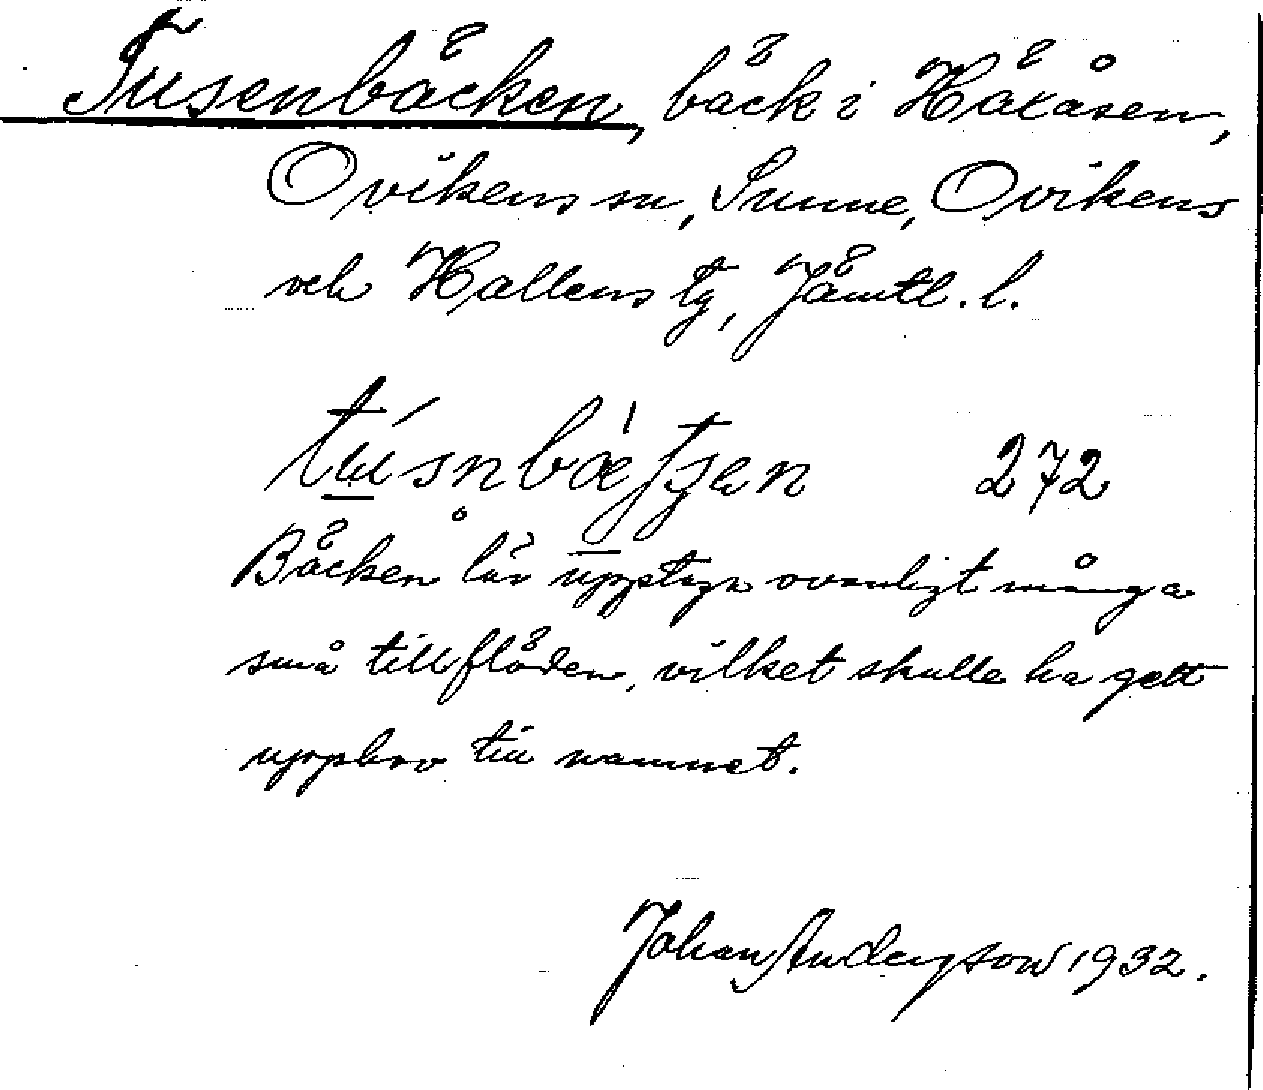 Tusenbäcken, bäck i Häxåsen,
Ovikens sn, Sunne, Ovikens
och Hallens tg, Jämtl. l.
túsnbæ̀ʃʒən 272
Bäcken lär upptaga ovanligt många
små tillflöden, vilket skulle ha gett
upphov till namnet.
Johan Anderszon 1932.